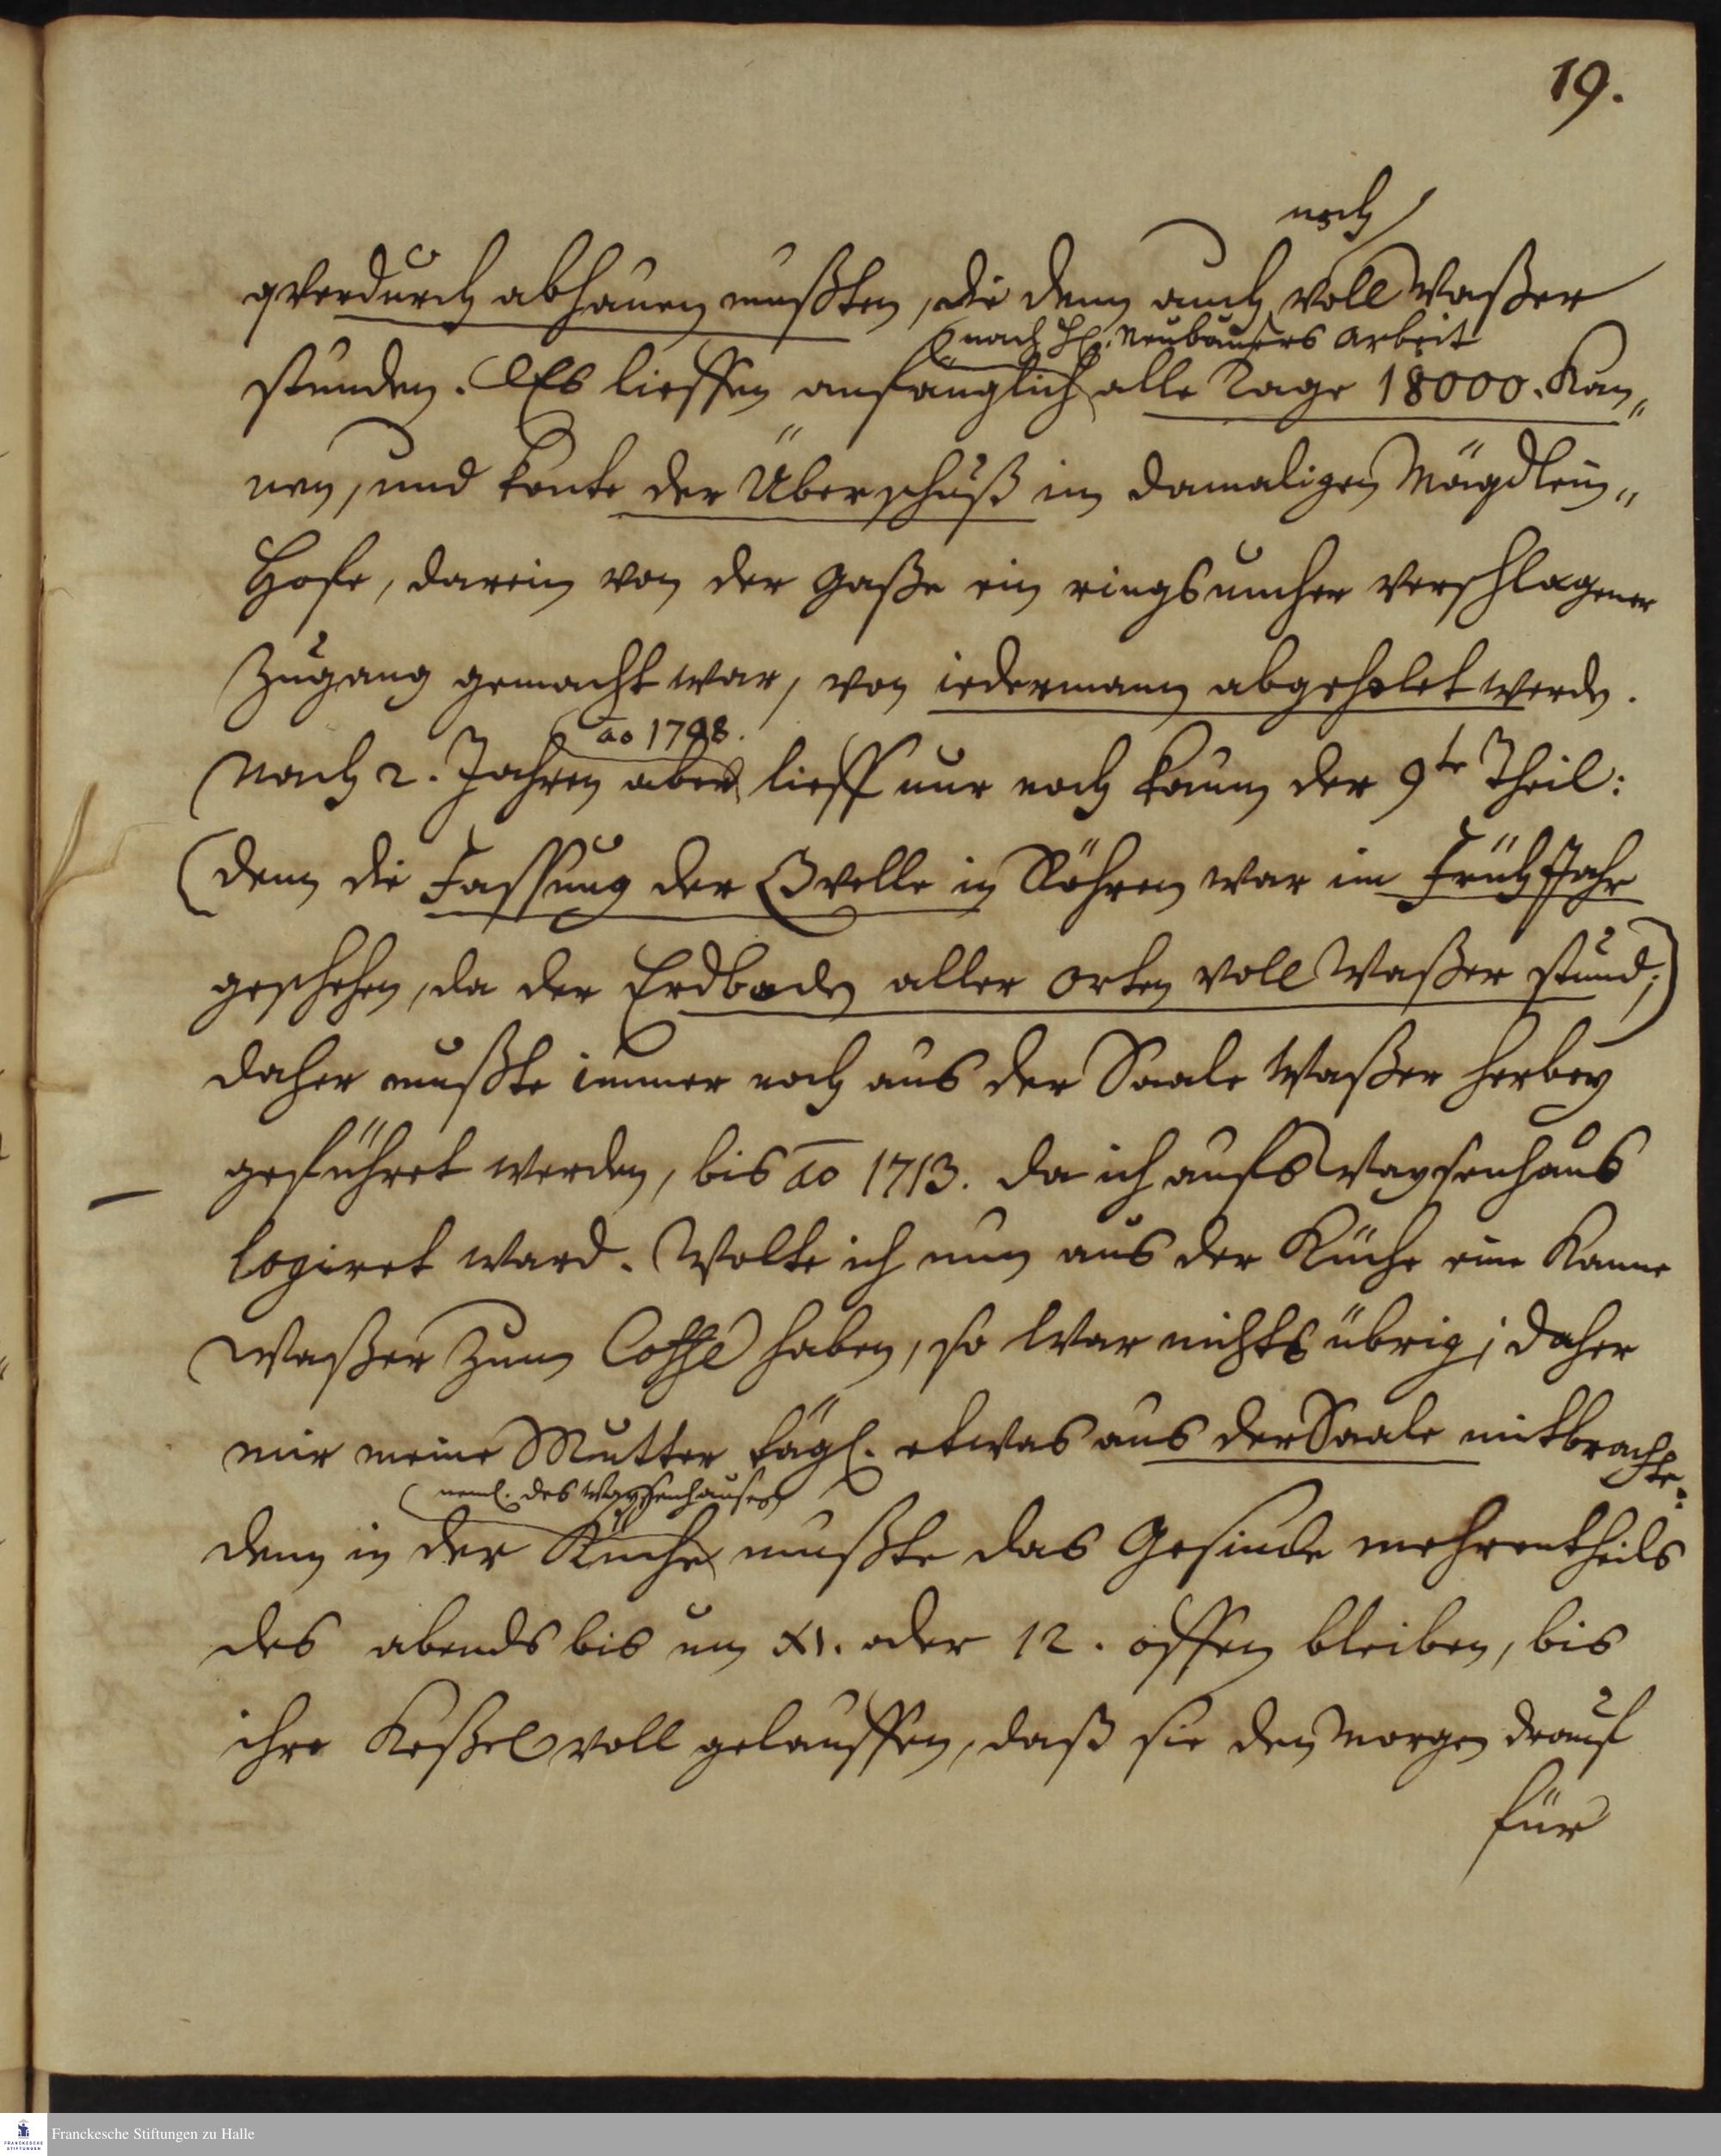 19.
noch
qverdurch abhauen mußten, die denn auch voll Waßer
nach H. Neubauers Arbeit
stunden. Es lieffen anfänglich alle Tage 18000. Kan„
nen, und konte der Überschuß im damaligen Mägdlein„
Hofe, darein von der Gaße ein ringsumher verschlagener
Zugang gemacht war, von iedermann abgeholet werden.
ao 1708.
Nach 2. Jahren aber lieff nur noch kaum der 9te Theil:
(denn die Fassung der Qvelle in Röhren war im FrühJahr
geschehen, da der Erdboden aller Orten voll Waßer stund;)
daher mußte immer noch aus der Saale Waßer herbey
geführet werden, bis ao 1713. da ich aufs Waysenhaus
logiret ward. Wolte ich nun aus der Küche eine Kanne
Waßer zum Coffe haben, so war nichts übrig; daher
mir meine Mutter tägl. etwas aus der Saale mitbrachte:
neml. des Waysenhauses
denn in der Küche mußte das Gesinde mehrentheils
des abends bis um XI. oder 12. offen bleiben, bis
ihre Keßel voll gelauffen, daß sie den Morgen drauf
für
Franckesche Stiftungen zu Halle
FRANCKESCHE
STIFTUNGEN